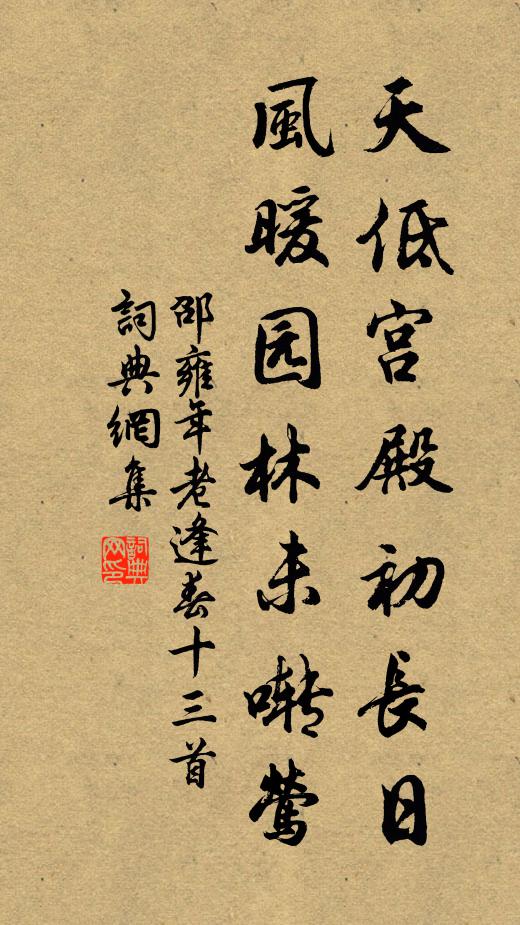 天低宮殿初長日
風暖园林未囀鶯
邵雍年老逢春十三首
詞典網集
詞典网印